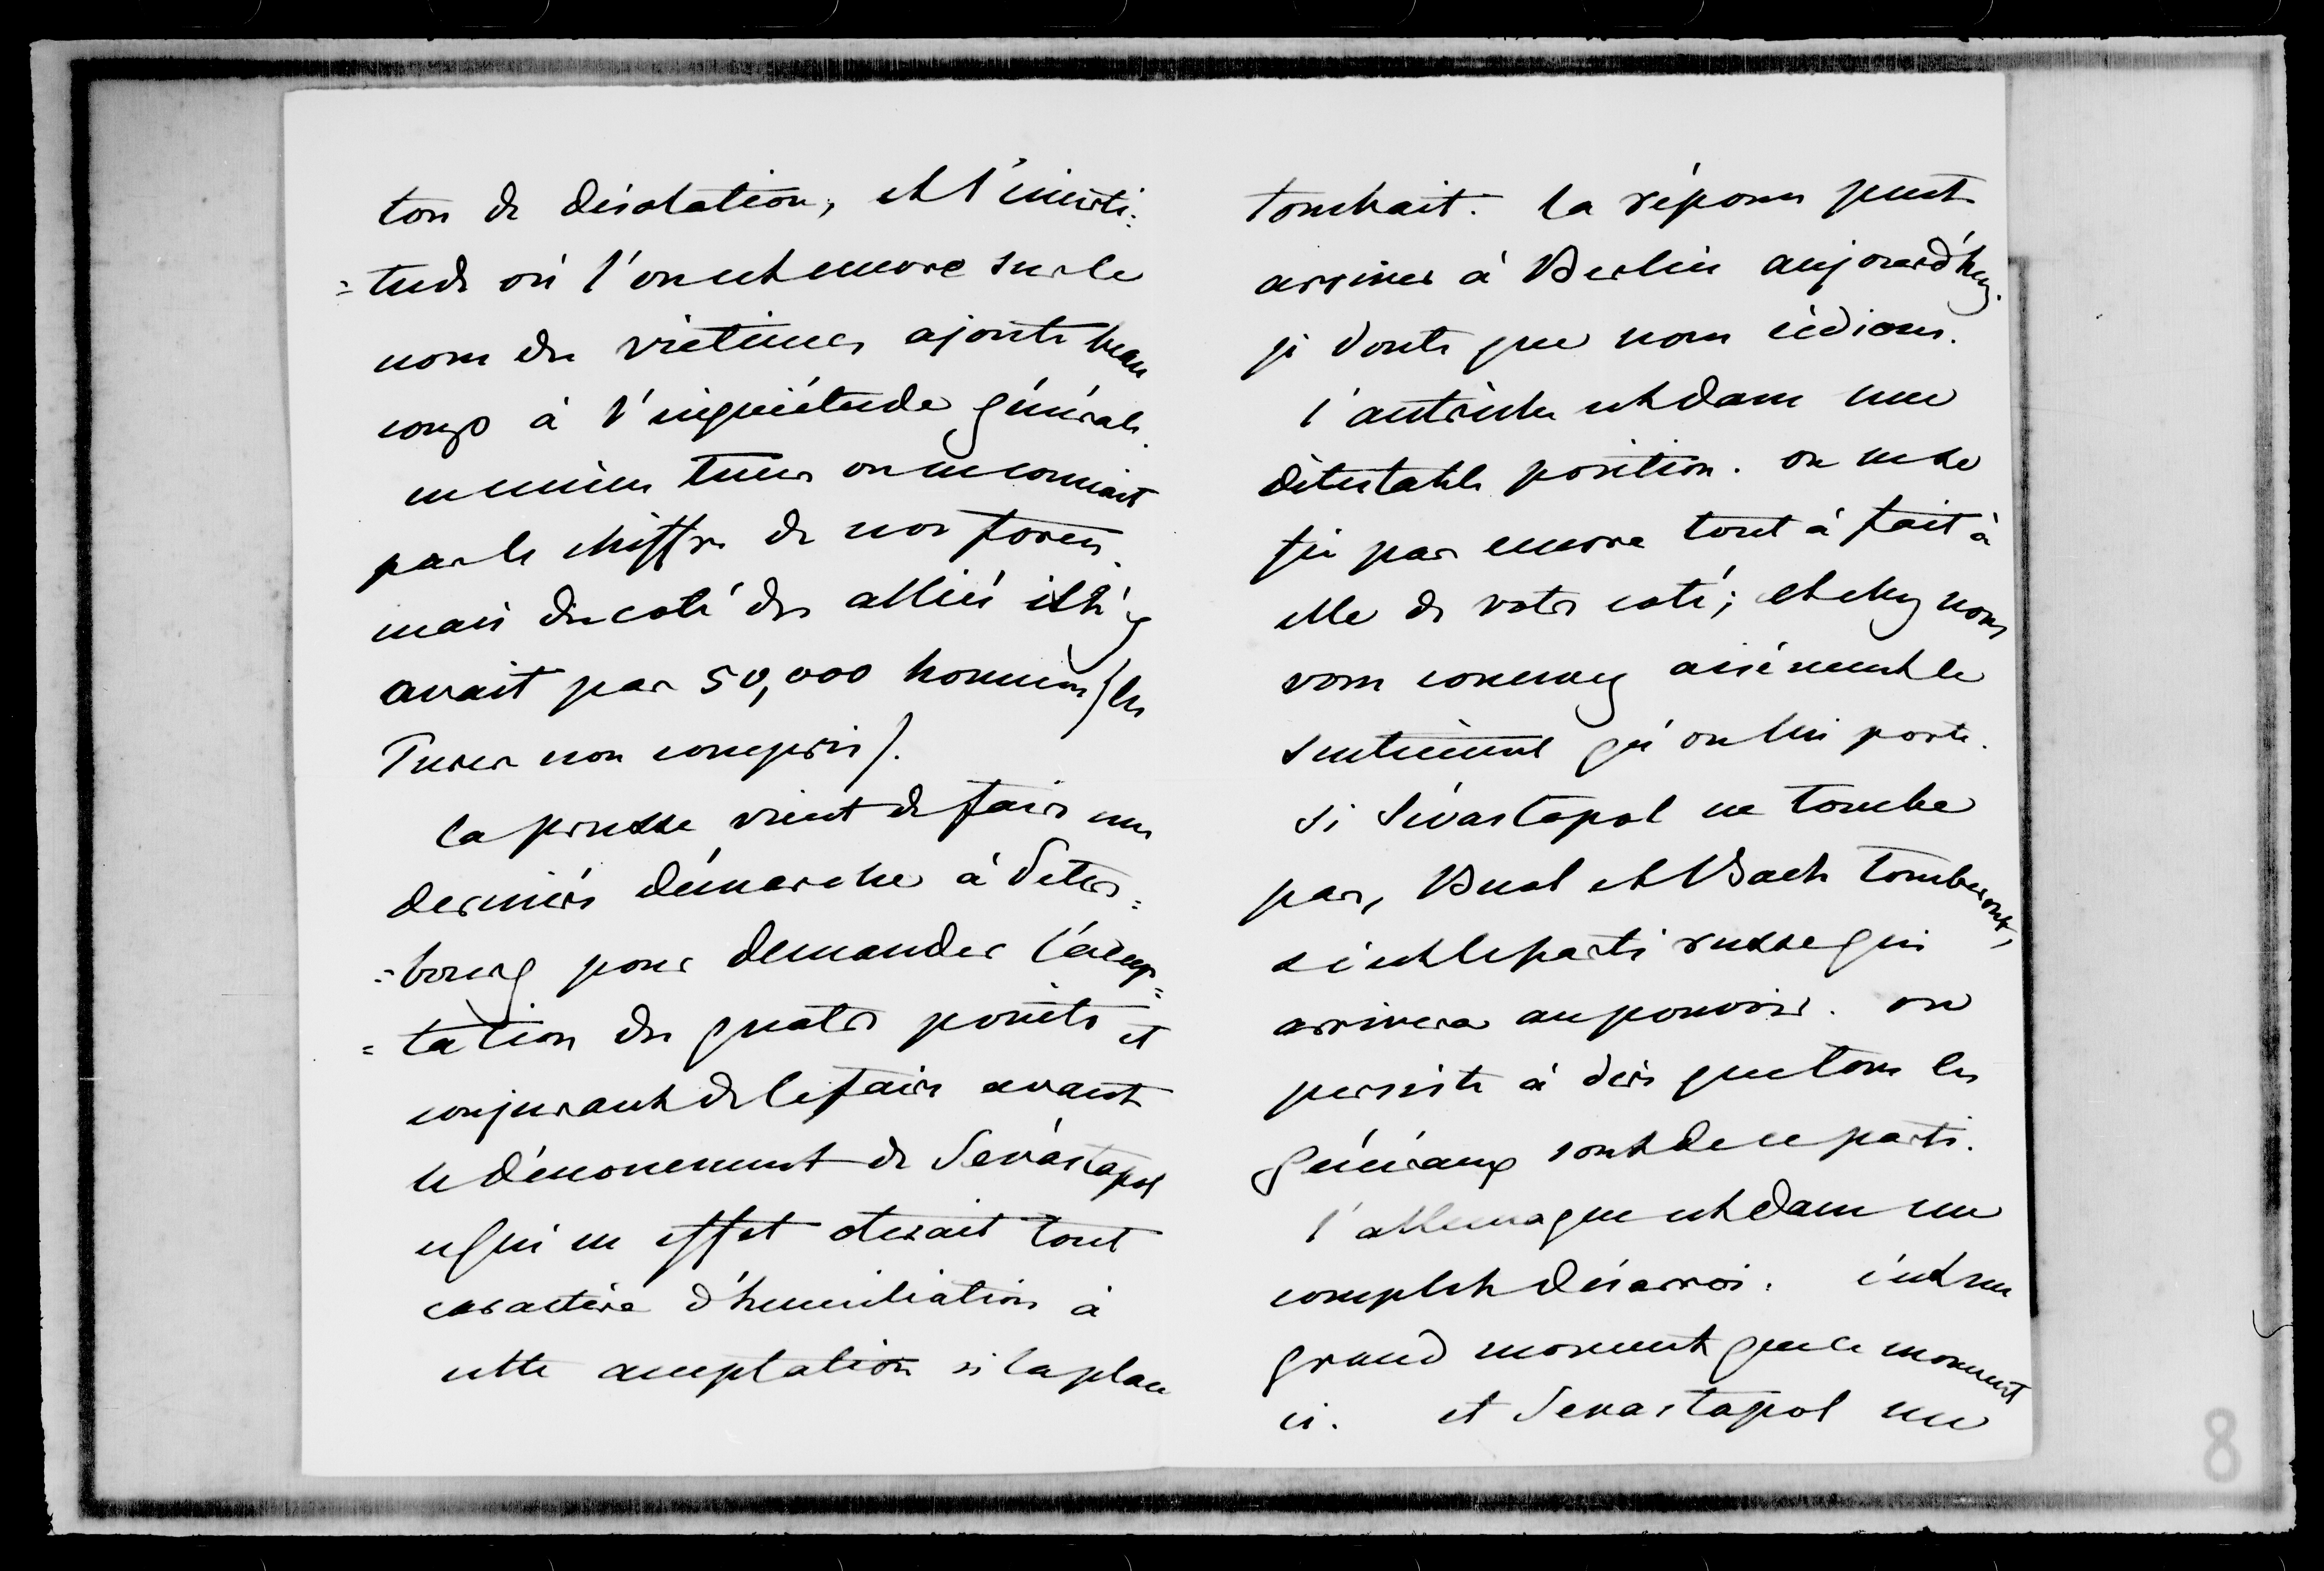 ton de désolation, et l'incerti:
=tude où l'on est encore sur le
nom des victimes ajoute beau
coup à l'inquiétude générale.
en même tems on ne connait
pas le chiffre de nos forces.
mais du coté des alliés il n'y
avait pas 50,000 hommes (les
Turcs non compris).
la prusse vient de faire une
dernière démarche à Peters=
=bourg pour demander l'accep=
=tation des quatre points et
conjurant de le faire avant
le dénouement de Sévastopol
ce qui en effet oterait tout
caractère d'humiliation à
cette acceptation si la place
tombait. la réponse peut
arriver à Berlin aujourd'huy.
je doute que nous cédions.
l'autriche est dans une
détestable position. on ne se
fie pas encore tout à fait à
elle de votre coté; et chez nous
vous concevez aisément le
sentiment qu'on lui porte.
si Sévastopol ne tombe
pas, Buol et Bach tomberont,
c'est le parti russe qui
arrivera au pouvoir. on
persiste à dire que tous les
généraux sont de ce parti.
l'allemagne est dans un
complet désarroi. c'est un
grand moment que ce moment
ci. et Sevastopol une
8